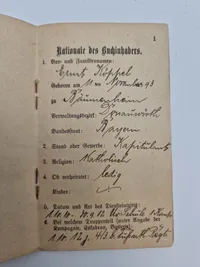 1
Nationale des Buchinhabers.
1. Vor- und Familienname:
Ernst Köppel
Geboren am 11ten November 93
zu Bäumenheim
Verwaltungsbezirk: Donauwörth
Bundesstaat: Bayern
2. Stand oder Gewerbe: Kapitulant
3. Religion: Katholisch
4. Ob verheiratet: ledig
Kinder:
5. Datum und Art des Diensteintritts:
1.10.10
6. Bei welchem Truppenteil (unter Angabe der
Kompagnie, Eskadron, Batterie):
1.10.12